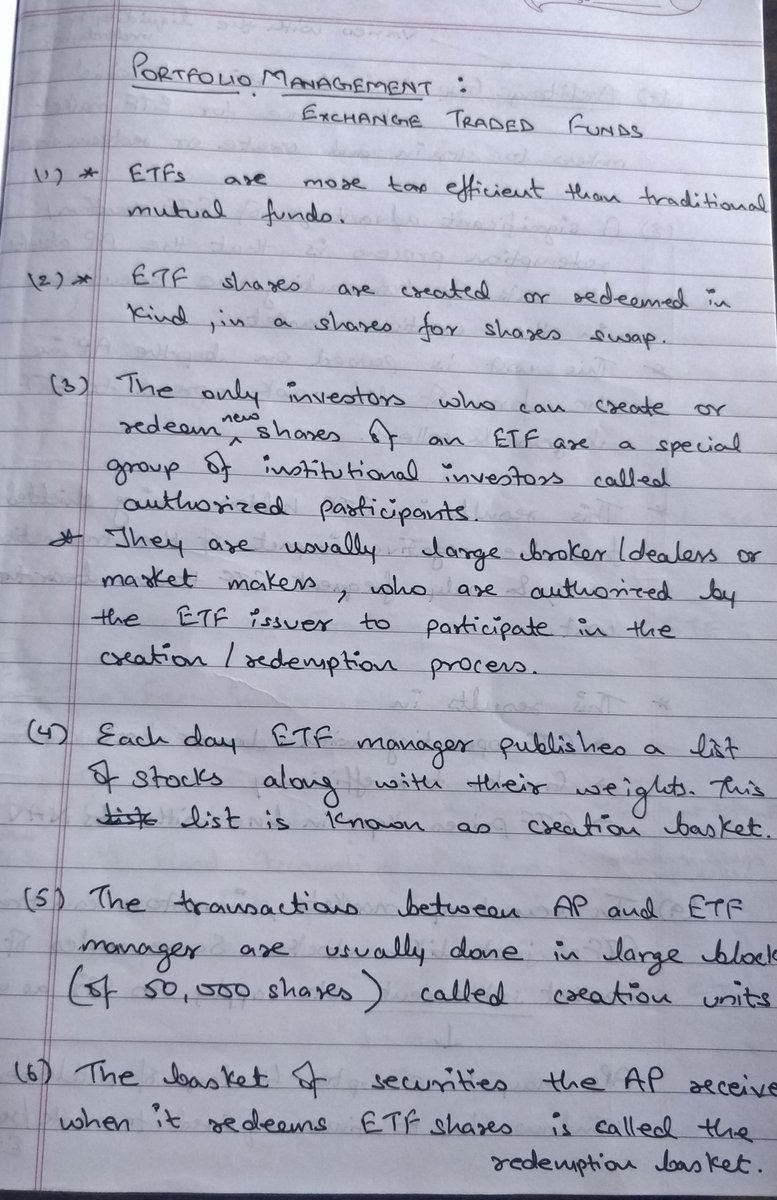 PORTFOLIO MANAGEMENT :
EXCHANGE TRADED FUNDS
(1) * ETFs are more tax efficient than traditional
mutual funds.
(2) * ETF shares are created or redeemed in
kind, in a shares for shares swap.
(3) The only investors who can create or
redeem new shares of an ETF are a special
group of institutional investors called
authorized participants.
* They are usually large broker/dealers or
market makers, who are authorized by
the ETF issuer to participate in the
creation / redemption process.
(4) Each day ETF manager publishes a list
of stocks along with their weights. This
list is known as creation basket.
(5) The transactions between AP and ETF
manager are usually done in large block
(of 50,000 shares) called creation units
(6) The basket of securities the AP receive
when it redeems ETF shares is called the
redemption basket.